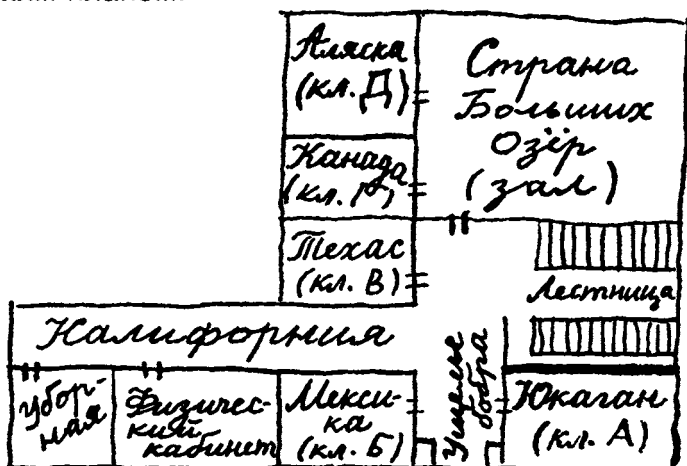 Аляска
(кл. Д)
Страна
Больших
Озёр
(зал)
Канада
(кл. Г)
Техас
(кл. В)
Лестница
Калифорния
Уборная
Физичес-
кий
кабинет
Мекси-
ка
(кл. Б)
Ущелье
бобра
Юкаган
(кл. А)